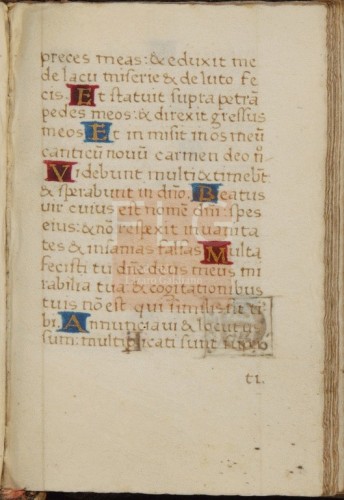 preces meas: & eduxit me
de lacu miserie & de luto fe
cis. Et statuit supra petrā
pedes meos: & direxit gressus
meos Et in misit in os meū
canticū nouū carmen deo nr̄o
Videbunt multi & timebūt
& sperabunt in dn̄o. Beatus
vir cuius est nomē dn̄i spes
eius: & nō respexit in uanita
tes & insanias falsas Multa
fecisti tu dn̄e deus meus mi
rabilia tua & cogitationibus
tuis nō est qui similis sit ti
bi. Annunciaui & locutus
sum: multiplicati sunt
ti.